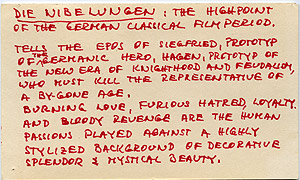 DIE NIBELUNGEN: THE HIGHPOINT
OF THE GERMAN CLASSICAL FILM PERIOD.
TELLS THE EPOS OF SIEGFRIED, PROTOTYP
OF THE GERMANIC HERO, HAGEN, PROTOTYP OF
THE NEW ERA OF KNIGHTHOOD AND FEUDALISM,
WHO MUST KILL THE REPRESENTATIVE OF
A BY-GONE AGE.
BURNING LOVE, FURIOUS HATRED, LOYALTY
AND BLOODY REVENGE ARE THE HUMAN
PASSIONS PLAYED AGAINST A HIGHLY
STYLIZED BACKGROUND OF DECORATIVE
SPLENDOR & MYSTICAL BEAUTY.